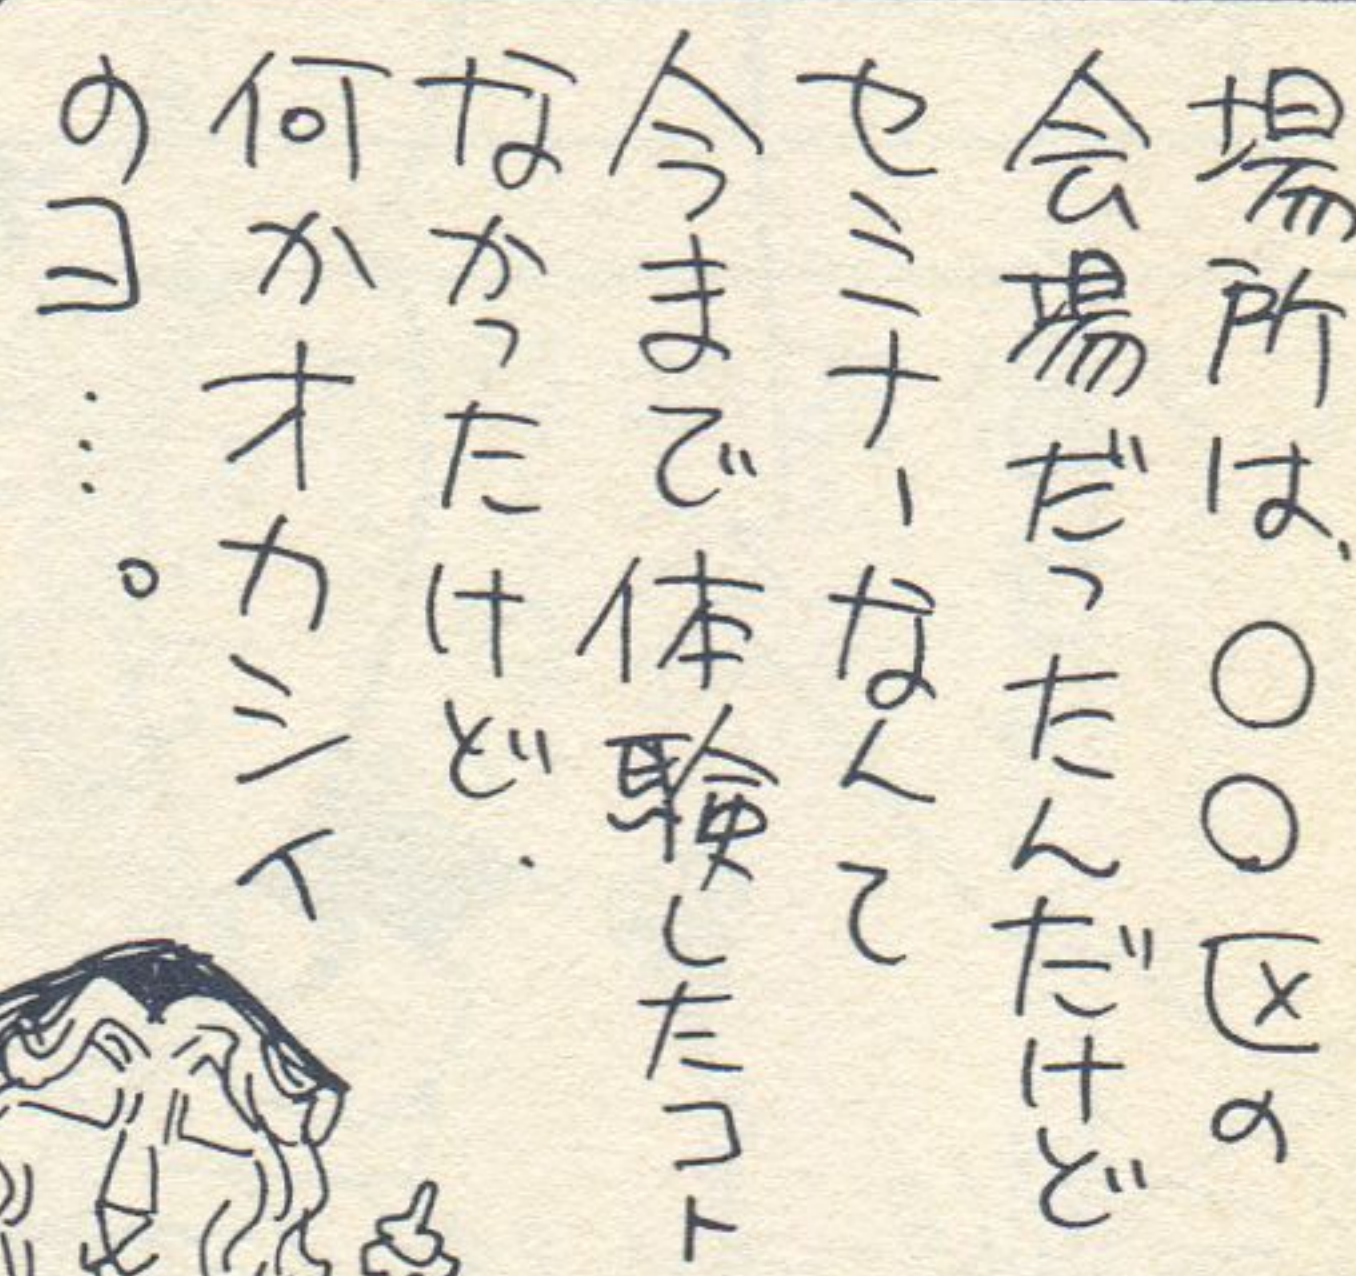 場所は、○○区の
会場だったんだけど
セミナーなんて
今まで体験したコト
なかったけど、
何かオカシイ
のヨ…。